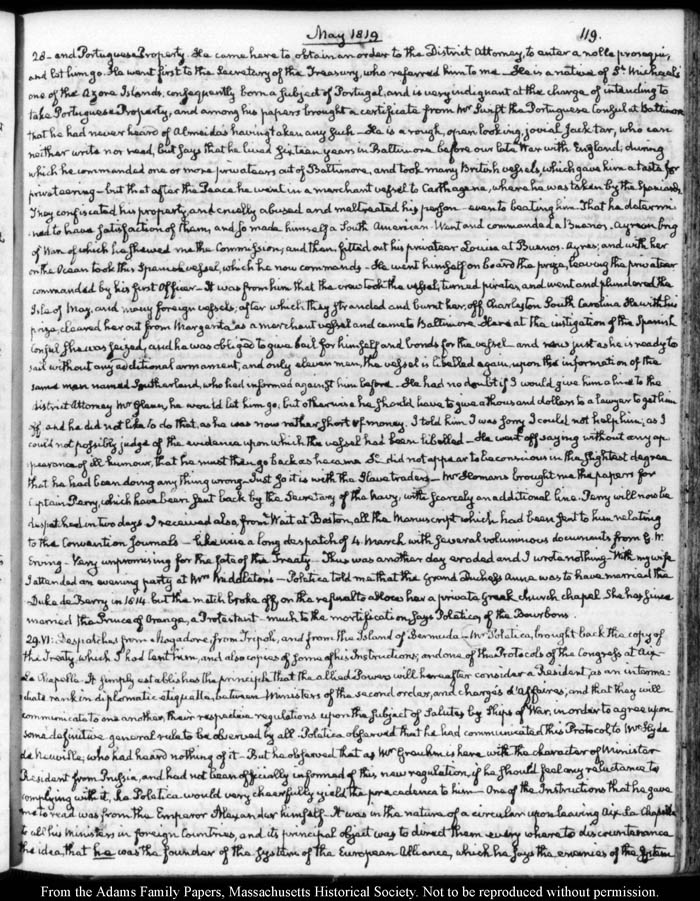 May 1819
119.
28 - and Portuguese Property. He came here to obtain an order to the District Attorney, to enter a nolle prosequi,
and let him go. He went first to the Secretary of the Treasury, who referred him to me. He is a native of St. Michael's
one of the Azore Islands, consequently born a subject of Portugal, and is very indignant at the charge of intending to
take Portuguese Property, and among his papers brought a certificate from Mr Swift the Portuguese Consul at Baltimore
that he had never heard of Almeida's having taken any such - He is a rough, open looking, jovial Jack tar, who can
neither write nor read, but says that he lived sixteen years in Baltimore before our late War with England; during
which he commanded one or more privateers out of Baltimore, and took many British vessels, which gave him a taste for
privateering - but that after the Peace he went in a merchant vessel to Carthagena, where he was taken by the Spaniards.
They confiscated his property, and cruelly abused and maltreated his person - even to beating him. That he determi-
ned to have satisfaction of them, and so made himself a South American. Went and commanded a Buenos-Ayrean brig
of War, of which he shewed me the Commission; and then fitted out his privateer Louisa at Buenos-Ayres; and with her
on the Ocean took this Spanish vessel, which he now commands - He went himself on board the prize, leaving the privateer
commanded by his first Officer - It was from him that the crew took the vessel, turned pirates, and went and plundered the
Isle of May, and many foreign vessels; after which they stranded and burnt her, off Charleston South Carolina. He with his
prize, cleared her out from Margarita as a merchant vessel and came to Baltimore. Here at the instigation of the Spanish
Consul she was seized, and he was obliged to give bail for himself and bonds for the vessel - and now just as he is ready to
sail without any additional armament, and only eleven men, the vessel is libelled again, upon the information of the
same man named Southerland, who had informed against him before - He had no doubt if I would give him a line to the
district Attorney Mr Glenn, he would let him go, but otherwise he should have to give a thousand dollars to a lawyer to get him
off and he did not like to do that, as he was now rather short of money. I told him I was sorry I could not help him; as I
could not possibly judge of the evidence upon which the vessel had been libelled - He went off saying without any ap-
pearance of ill humour, that he must then go back as he came. It did not appear to be conscious in the slightest degree
that he had been doing any thing wrong. Just so it is with the Slave traders - Mr Homans brought me the papers for
Captain Perry, which have been sent back by the Secretary of the Navy, with scarcely an additional line. Perry will now be
dispatched in two days. I received also, from Wait at Boston, all the Manuscript which had been sent to him relating
to the Convention Journals - likewise a long despatch of 4. March with several voluminous documents from G. W.
Erving - Very unpromising for the fate of the Treaty. Thus was another day eroded and I wrote nothing - With my wife
I attended an evening party at Mrs Middleton's - Poletica told me that the Grand Duchess Anne was to have married the
Duke de Berry in 1814. but the match broke off on the refusal to allow her a private Greek church chapel. She has since
married the Prince of Orange, a Protestant - much to the mortification, says Poletica, of the Bourbons.
29. VI: Despatches from Mogadore, from Tripoli, and from the Island of Bermuda - Mr Poletica, brought back the copy of
the Treaty, which I had lent him, and also copies of some of his Instructions; and one of the Protocols of the Congress at Aix-
La Chapelle. It simply establishes the principle that the allied Powers will hereafter consider a Resident, as an interme-
diate rank in diplomatic etiquette, between Ministers of the second order, and chargés d'Affaires; and that they will
communicate to one another, their respective regulations upon the subject of Salutes by Ships of War, in order to agree upon
some definitive general rule to be observed by all. Poletica observed that he had communicated this Protocol to Mr Hyde
de Neuville, who had heard nothing of it - But he observed that as Mr Greuhm is here with the character of Minister
Resident from Prussia, and had not been officially informed of this new regulation, if he should feel any reluctance to
complying with it, he Poletica would very cheerfully yield the precedence to him - One of the Instructions that he gave
me to read was from the Emperor Alexander himself. It was in the nature of a circular upon leaving Aix-La-Chapelle
to all his Ministers in foreign Countries, and its principal object was to direct them every where to discountenance
the idea, that he was the founder of the System of the European Alliance, which he says the enemies of the System
From the Adams Family Papers, Massachusetts Historical Society. Not to be reproduced without permission.